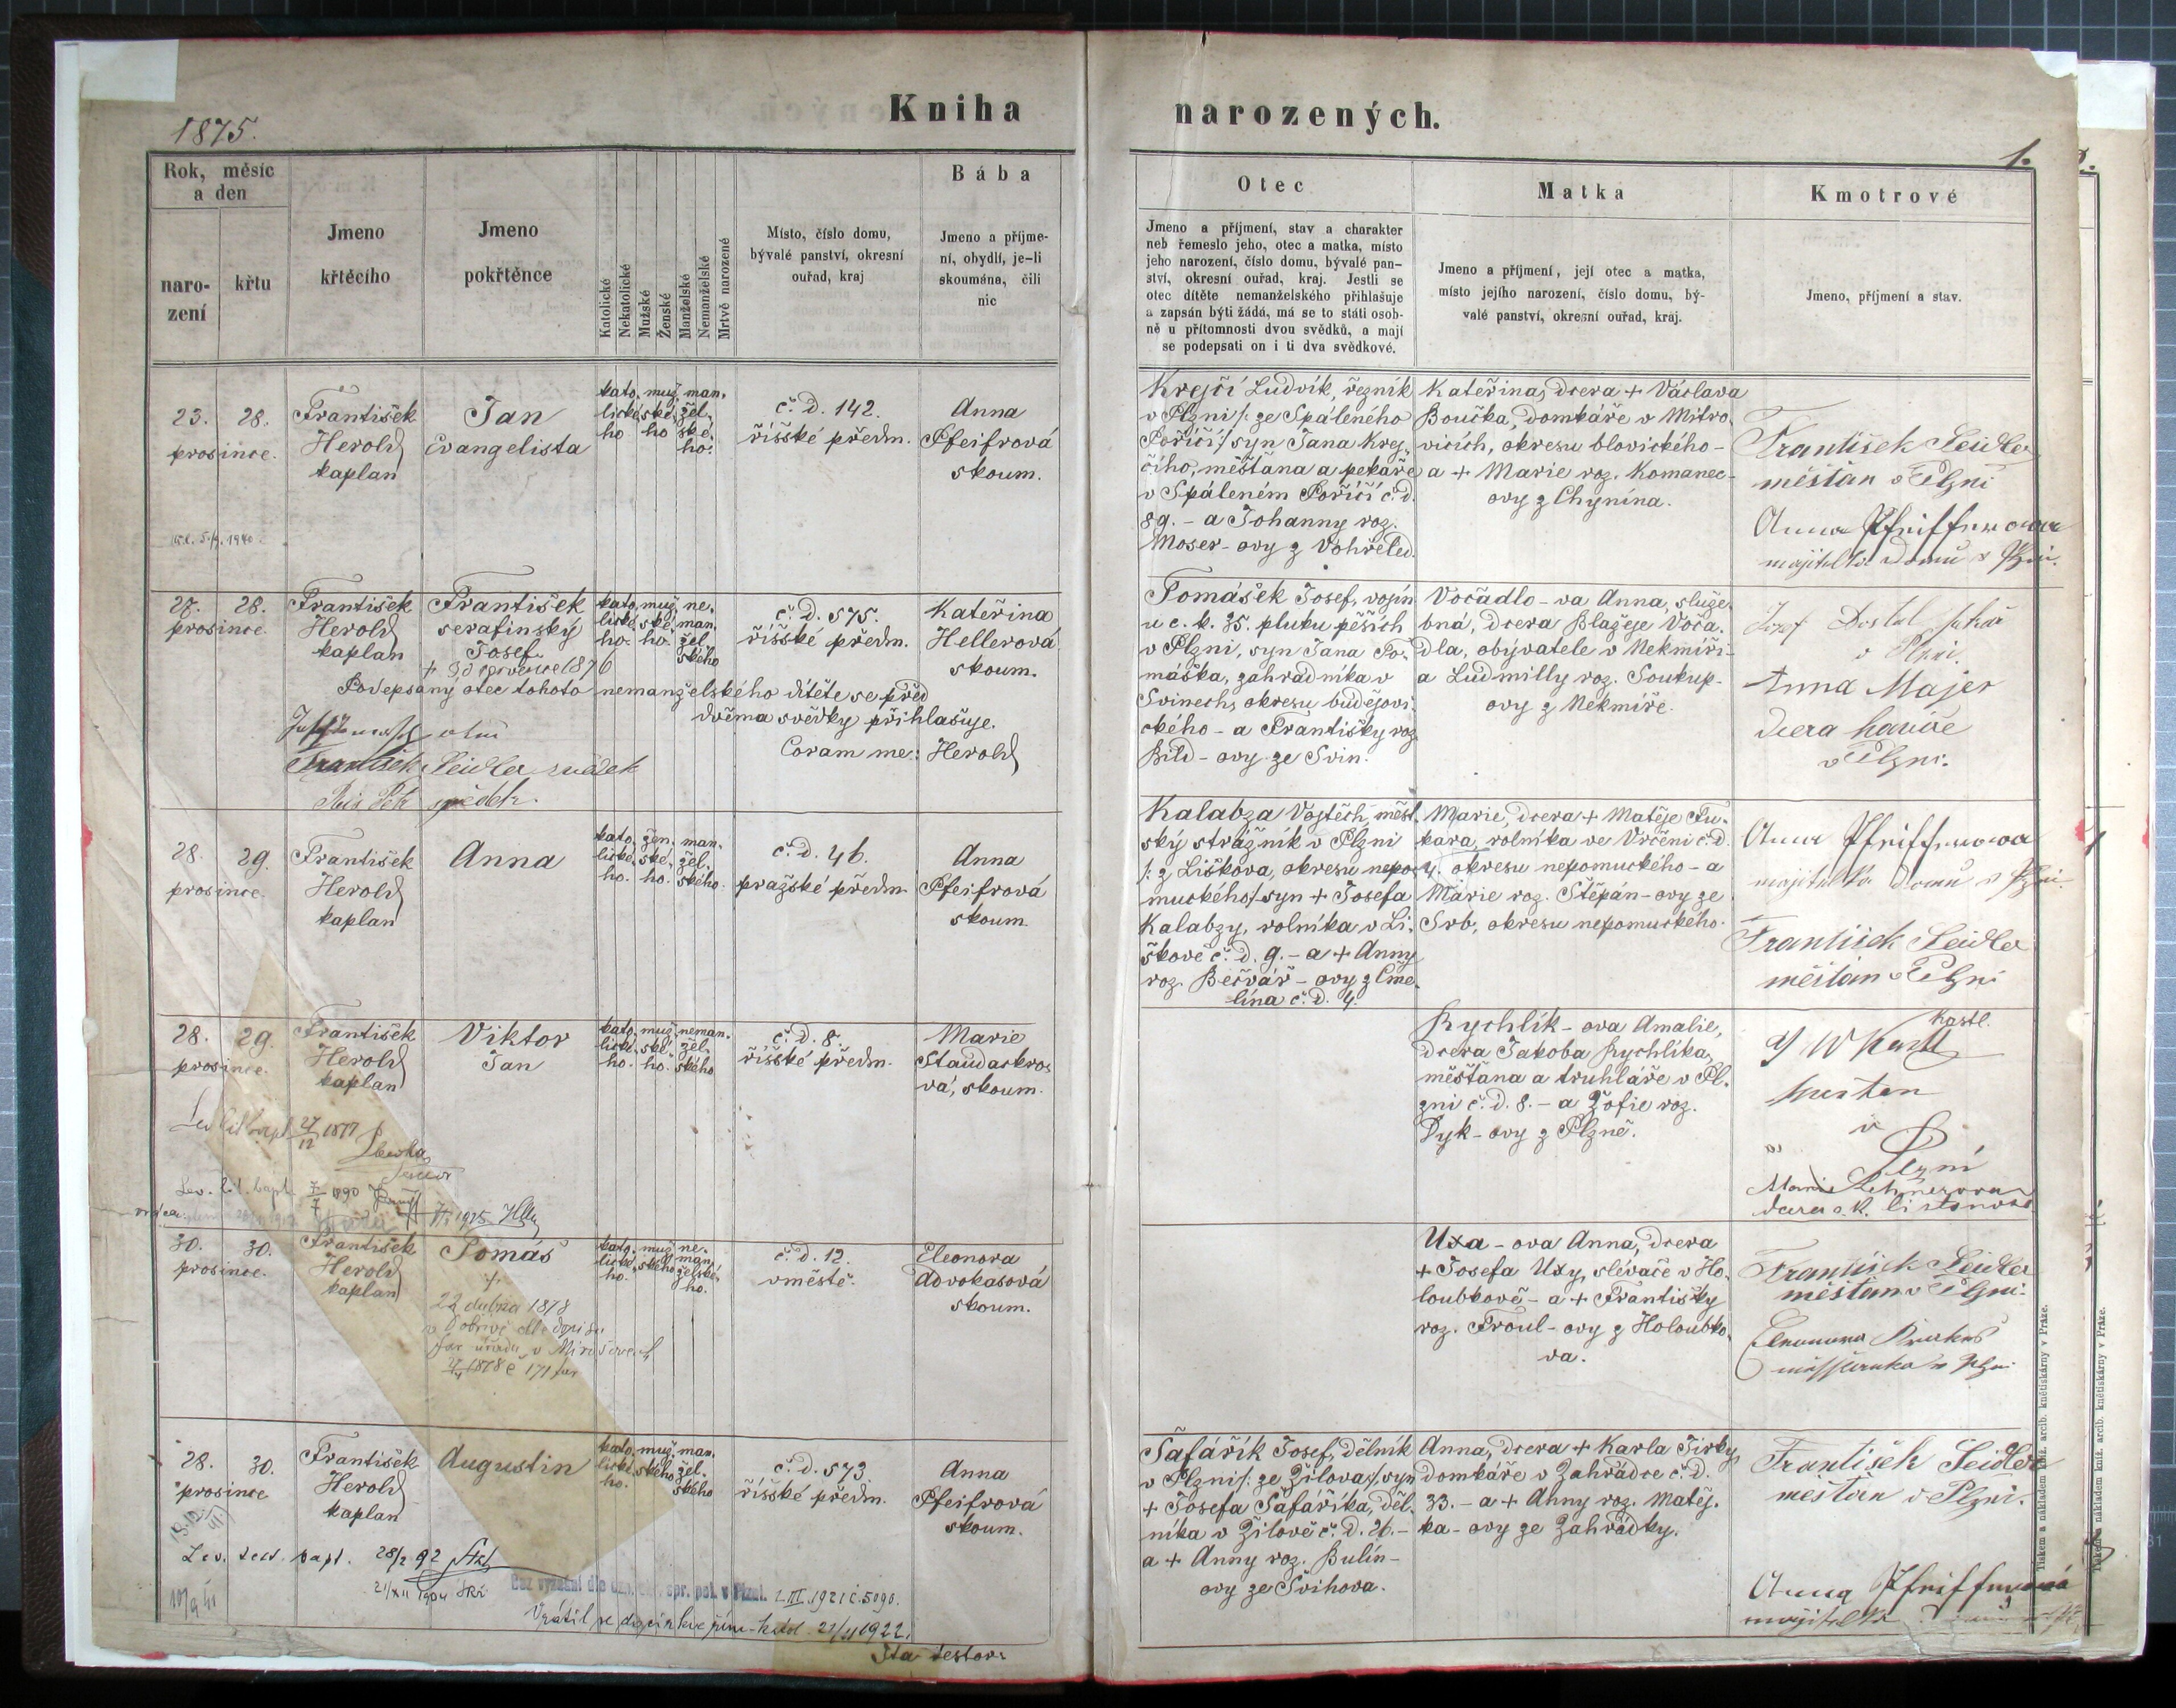 1875.
Kniha narozených.
1.
Rok, měsíc
a den
naro-
zení
křtu
Jmeno
křtěcího
Jmeno
pokřtěnce
Katolické
Nekatolické
Mužské
Ženské
Manželské
Nemanželské
Mrtvě narozené
Místo, číslo domu,
bývalé panství, okresní
ouřad, kraj
Bába
Jmeno a příjme-
ní, obydlí, je-li
skoumána, čili
nic
Otec
Jmeno a příjmení, stav a charakter
neb řemeslo jeho, otec a matka, místo
jeho narození, číslo domu, bývalé pan-
ství, okresní ouřad, kraj. Jestli se
otec dítěte nemanželského přihlašuje
a zapsán býti žádá, má se to státi osob-
ně u přítomnosti dvou svědků, a mají
se podepsati on i ti dva svědkové.
Matka
Jmeno a příjmení, její otec a matka,
místo jejího narození, číslo domu, bý-
valé panství, okresní ouřad, kraj.
Kmotrové
Jmeno, příjmení a stav.
23. 28.
prosince.
František
Herold
kaplan
Jan
Evangelista
kato. muž. man.
lické ské žel.
ho ho ské.
ho.
č. d. 142.
říšské předm.
Anna
Pfeifrová
skoum.
Krejčí Ludvík, řezník
v Plzni /: ze Spáleného
Poříčí:/ syn Jana Krej-
čího, měšťana a pekaře
v Spáleném Poříčí č. d.
89. - a Johanny roz.
Moser-ovy z Vohřeled.
Kateřina, dcera + Václava
Boučka, domkáře v Mitro-
vicích, okresu blovického -
a + Marie roz. Komanec-
ovy z Chynína.
František Seidler
měšťan v Plzni
Anna Pfeiffrowa
majitelka domu v Plzni.
27. 28.
prosince.
František
Herold
kaplan
František
serafinský
Josef
kato. muž. ne.
lické ské man.
ho. ho. žel
ského
č. d. 575.
říšské předm.
Kateřina
Hellerová
skoum.
Podepsaný otec tohoto nemanželského dítěte se před
dvěma svědky přihlašuje.
Coram me: Herold
František Seidler svědek
svědek.
Tomášek Josef, vojín
u c. k. 35. pluku pěších
v Plzni, syn Jana To-
máška, zahradníka v
Svinech, okresu budějovi-
ckého - a Františky roz.
Bild-ovy ze Svin.
Vořadlo-va Anna, služe-
bná, dcera Blažeje Vořa-
dla, obyvatele v Nekmíři -
a Ludmilly roz. Soukup-
ovy z Nekmíře.
Jozef Dostal
v Plzni.
Anna Majer
dcera havíře
v Plzni.
28. 29.
prosince.
František
Herold
kaplan
Anna
kato. žen. man.
lické. ské. žel.
ho. ho. ského.
č. d. 46.
pražské předm.
Anna
Pfeifrová
skoum.
Kalabza Vojtěch, měst.
ský strážník v Plzni
/: z Liškova, okresu nepo-
muckého:/ syn + Josefa
Kalabzy, rolníka v Li-
škově č. d. 9. - a + Anny
roz. Bečvář-ovy z Čme-
lína č. d. 4.
Marie, dcera + Matěje Fu-
kara, rolníka ve Vrčeni č. d.
4. okresu nepomuckého - a
Marie roz. Štěpán-ovy ze
Srb, okresu nepomuckého.
Anna Pfeiffrowa
majitelka domu v Plzni
František Seidler
měšťan v Plzni
28. 29.
prosince.
František
Herold
kaplan
Viktor
Jan
kato. muž. neman.
lické. ské žel.
ho. ho. ského
č. d. 8.
říšské předm.
Marie
Staudackro-
vá, skoum.
Rychlík-ova Amalie,
dcera Jakoba Rychlíka,
měšťana a truhláře v Pl-
zni č. d. 8. - a Žofie roz.
Dyk-ovy z Plzně.
Kastl.
v
Plzni
30. 30.
prosince.
František
Herold
kaplan
Tomáš
22 dubna 1878
kato. muž. ne.
lické. ského man.
ho. želské-
ho.
č. d. 12.
v městě.
Eleonora
Advokasová
skoum.
Uxa-ova Anna, dcera
+ Josefa Uxy, slévače v Ho-
loubkově - a + Františky
roz. Troul-ovy z Holoubko-
va.
František Seidler
měšťan v Plzni.
28. 30.
prosince
František
Herold
kaplan
Augustin
kato. muž. man.
lické. ského žel.
ho. ského
č. d. 573.
říšské předm.
Anna
Pfeifrová
skoum.
Šafařík Josef, dělník
v Plzni /: ze Žilova:/ syn
+ Josefa Šafaříka, děl-
níka v Žilově č. d. 26. -
a + Anny roz. Bulín-
ovy ze Švihova.
Anna, dcera + Karla Jirky,
domkáře v Zahrádce č. d.
33. - a + Anny roz. Matěj-
ka-ovy ze Zahrádky.
František Seidler
měšťan v Plzni.
Anna Pfeiffrová
majitelka
28/2 92
21/XII 1904
Bez vyznání dle
1. III. 1921 č. 5090.
Vrátil se do církve řím-katol. 21/II 1922.
Ita testor:
Tiskem a nákladem kníž. arcib. knihtiskárny v Praze.